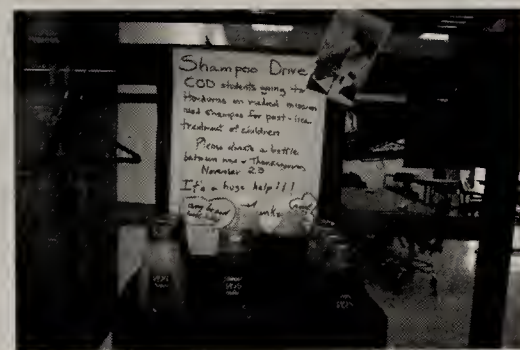 Shampoo Drive
COD students going to
Honduras on medical mission
need shampoo for post-lice
treatment of children
Please donate a bottle
between now + Thanksgiving
November 23
It's a huge help!!!
any brand